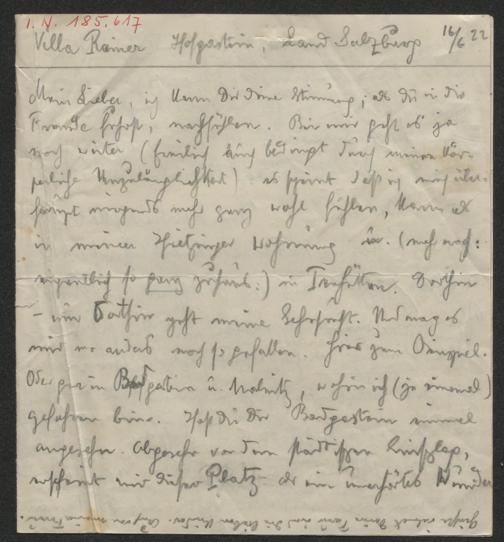 I. N. 185.617
Villa Rainer Hofgastein, Land Salzburg 16/6 22
Mein Lieber, ich kann Dir deine Stimmung, als du in die
Fremde fuhrst, nachfühlen. Bei mir geht es ja
noch weiter (freilich auch bedingt durch meine kör-
perliche Unzulänglichkeit) es scheint daß ich mich über-
haupt nirgends mehr ganz wohl fühlen kann als
in meiner Hietzinger Wohnung u. (noch mehr:
eigentlich so ganz zuhaus:) in . Dorthin
– nur dorthin geht meine Sehnsucht. Und mag es
mir wo anders noch so gefallen. Hier zum Beispiel.
Oder gar in Badgastein u. Mallnitz, wohin ich (je einmal)
gefahren bin. Hast du dir Badgastein einmal
angesehen. Abgesehen von dem städtischen ,
erscheint mir dieser Platz als ein unerhörtes Wunder